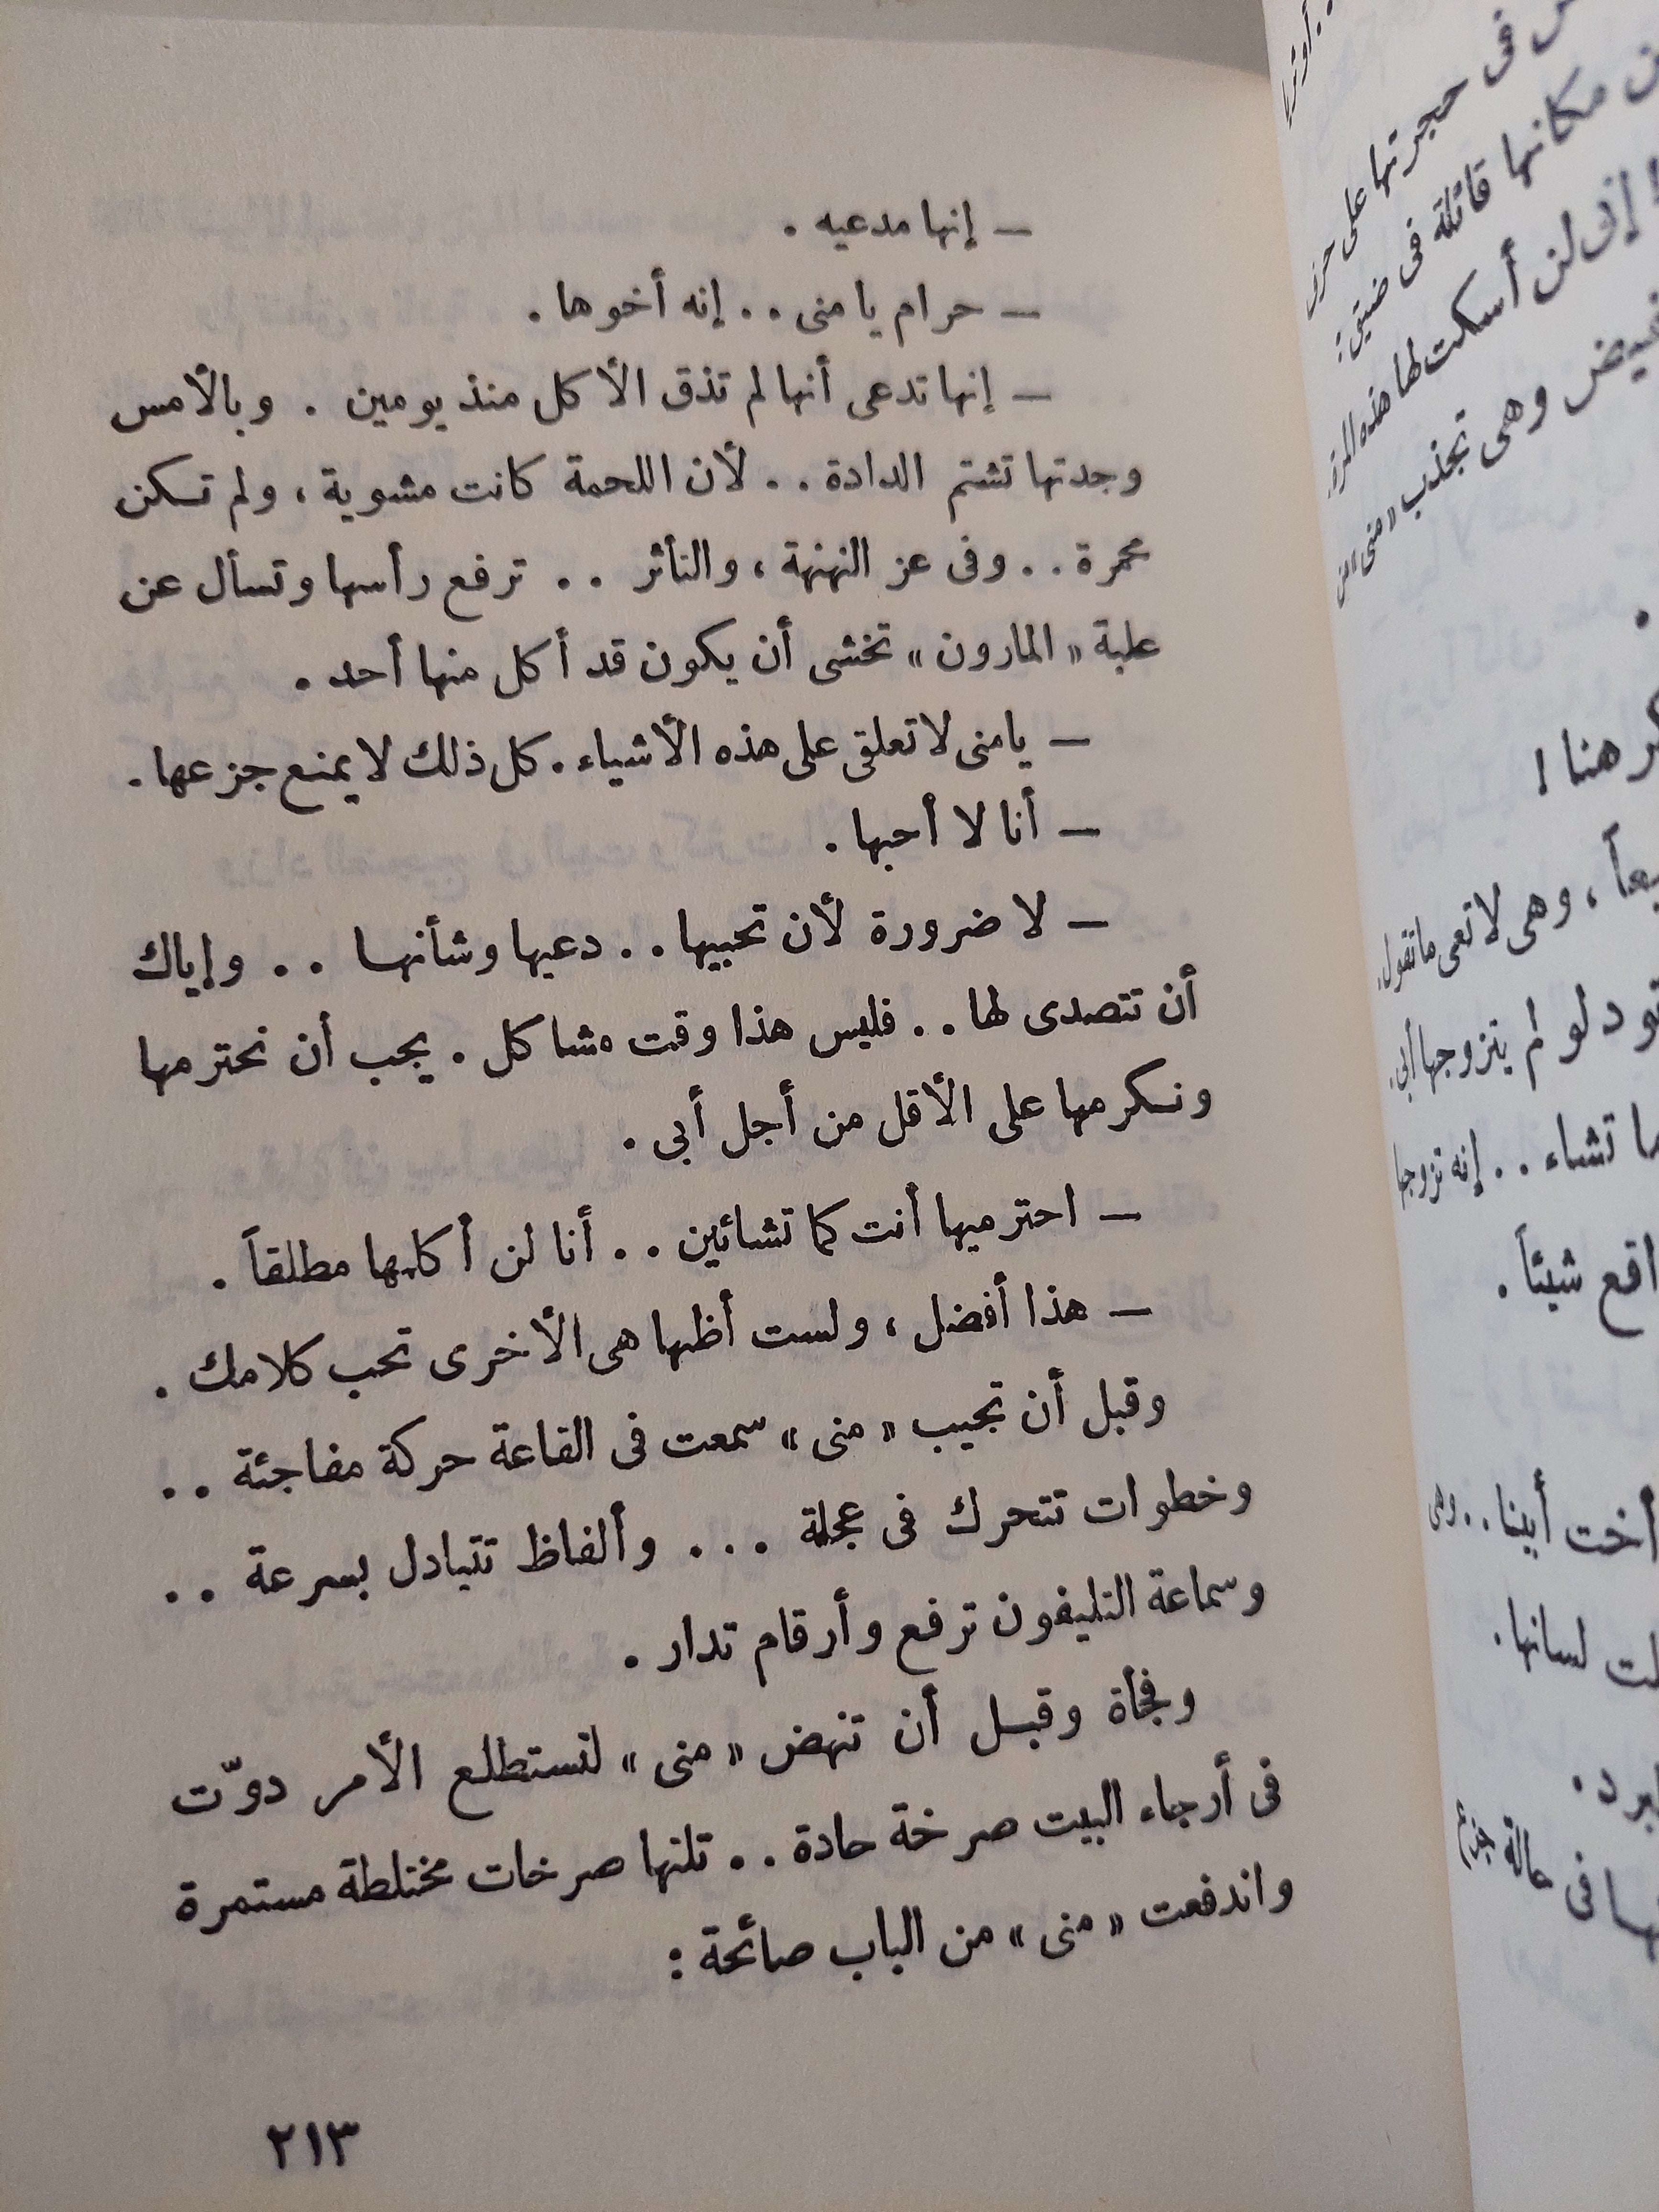 — إنها مدعيه .
— حرام يا منى . . إنه أخوها .
— إنها تدعى أنها لم تذق الأكل منذ يومين . وبالأمس
وجدتها تشتم الدادة . . لأن اللحمة كانت مشوية ، ولم تكن
محمرة . . وفى عز النهنهة ، والتأثر . . ترفع رأسها وتسأل عن
علبة « المارون » تخشى أن يكون قد أكل منها أحد .
— يا منى لا تعلقى على هذه الأشياء . كل ذلك لا يمنع جزعها .
— أنا لا أحبها .
— لا ضرورة لأن تحبيها . . دعيها وشأنها . . وإياك
أن تتصدى لها . . فليس هذا وقت مشاكل . يجب أن نحترمها
ونكرمها على الأقل من أجل أبى .
— احترميها أنت كما تشائين . . أنا لن أكلمها مطلقاً .
— هذا أفضل ، ولست أظنها هى الأخرى تحب كلامك .
وقبل أن تجيب « منى » سمعت فى القاعة حركة مفاجئة . .
وخطوات تتحرك فى عجلة . . . وألفاظ تتبادل بسرعة . .
وسماعة التليفون ترفع وأرقام تدار .
وفجأة وقبل أن تنهض « منى » لتستطلع الأمر دوّت
فى أرجاء البيت صرخة حادة . . تلتها صرخات مختلطة مستمرة
واندفعت « منى » من الباب صائحة :
٢١٣
فى حجرتها على
مكانها قائلة فى ضيق :
إنى لن أسكت لها هذه المرة
وهى تجذب « منى
هنا !
، وهى لا تعى ما تقول .
لو لم يتزوجها أبى .
تشاء . . إنه تزوجها
شيئاً .
أخت أبينا . . وهى
لسانها .
فى حالة جزع